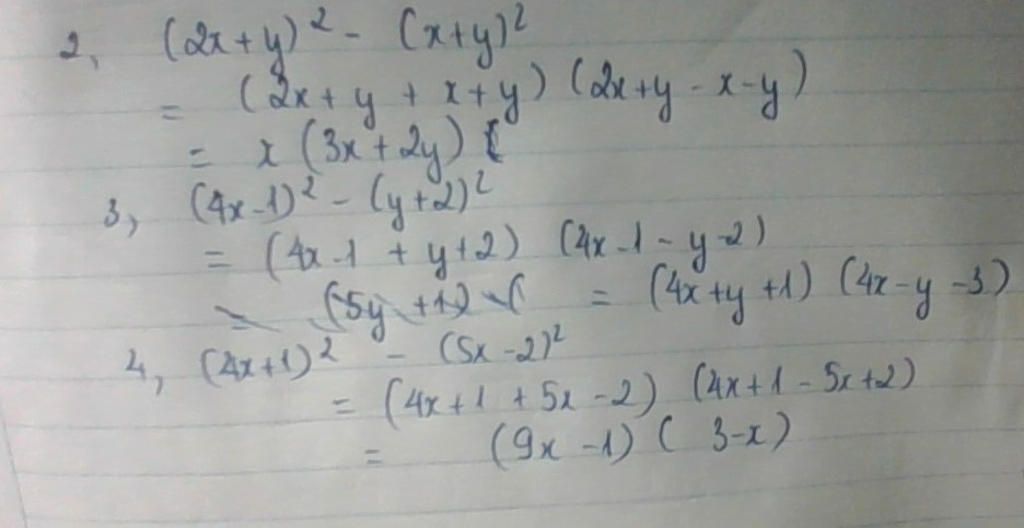 2, (2x+y)² - (x+y)²
= (2x+y + x+y) (2x+y - x-y)
= x (3x+2y)
3, (4x-1)² - (y+2)²
= (4x-1 + y+2) (4x-1 - y-2)
= (5y +1) ( = (4x+y+1) (4x-y-3)
4, (4x+1)² - (5x-2)²
= (4x+1 +5x-2) (4x+1 - 5x+2)
= (9x-1) ( 3-x)